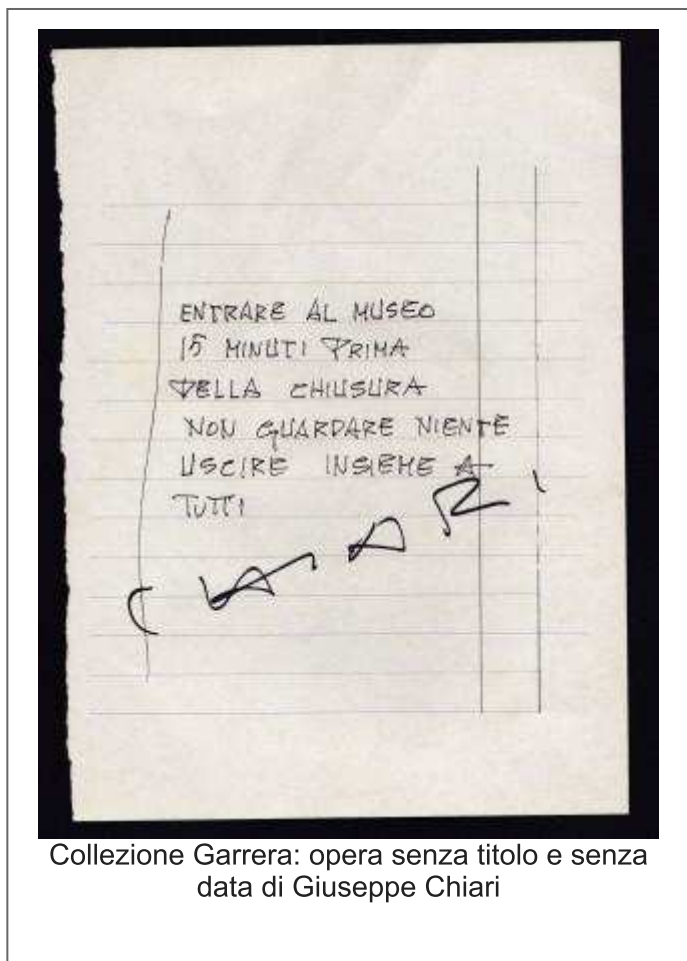 ENTRARE AL MUSEO
15 MINUTI PRIMA
DELLA CHIUSURA
NON GUARDARE NIENTE
USCIRE INSIEME A
TUTTI
CHIARI
Collezione Garrera: opera senza titolo e senza
data di Giuseppe Chiari